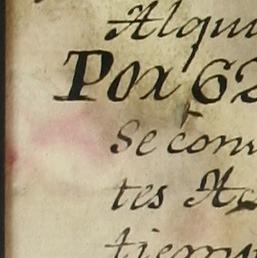 Alqui
Por 62
Se con
tes
tiem